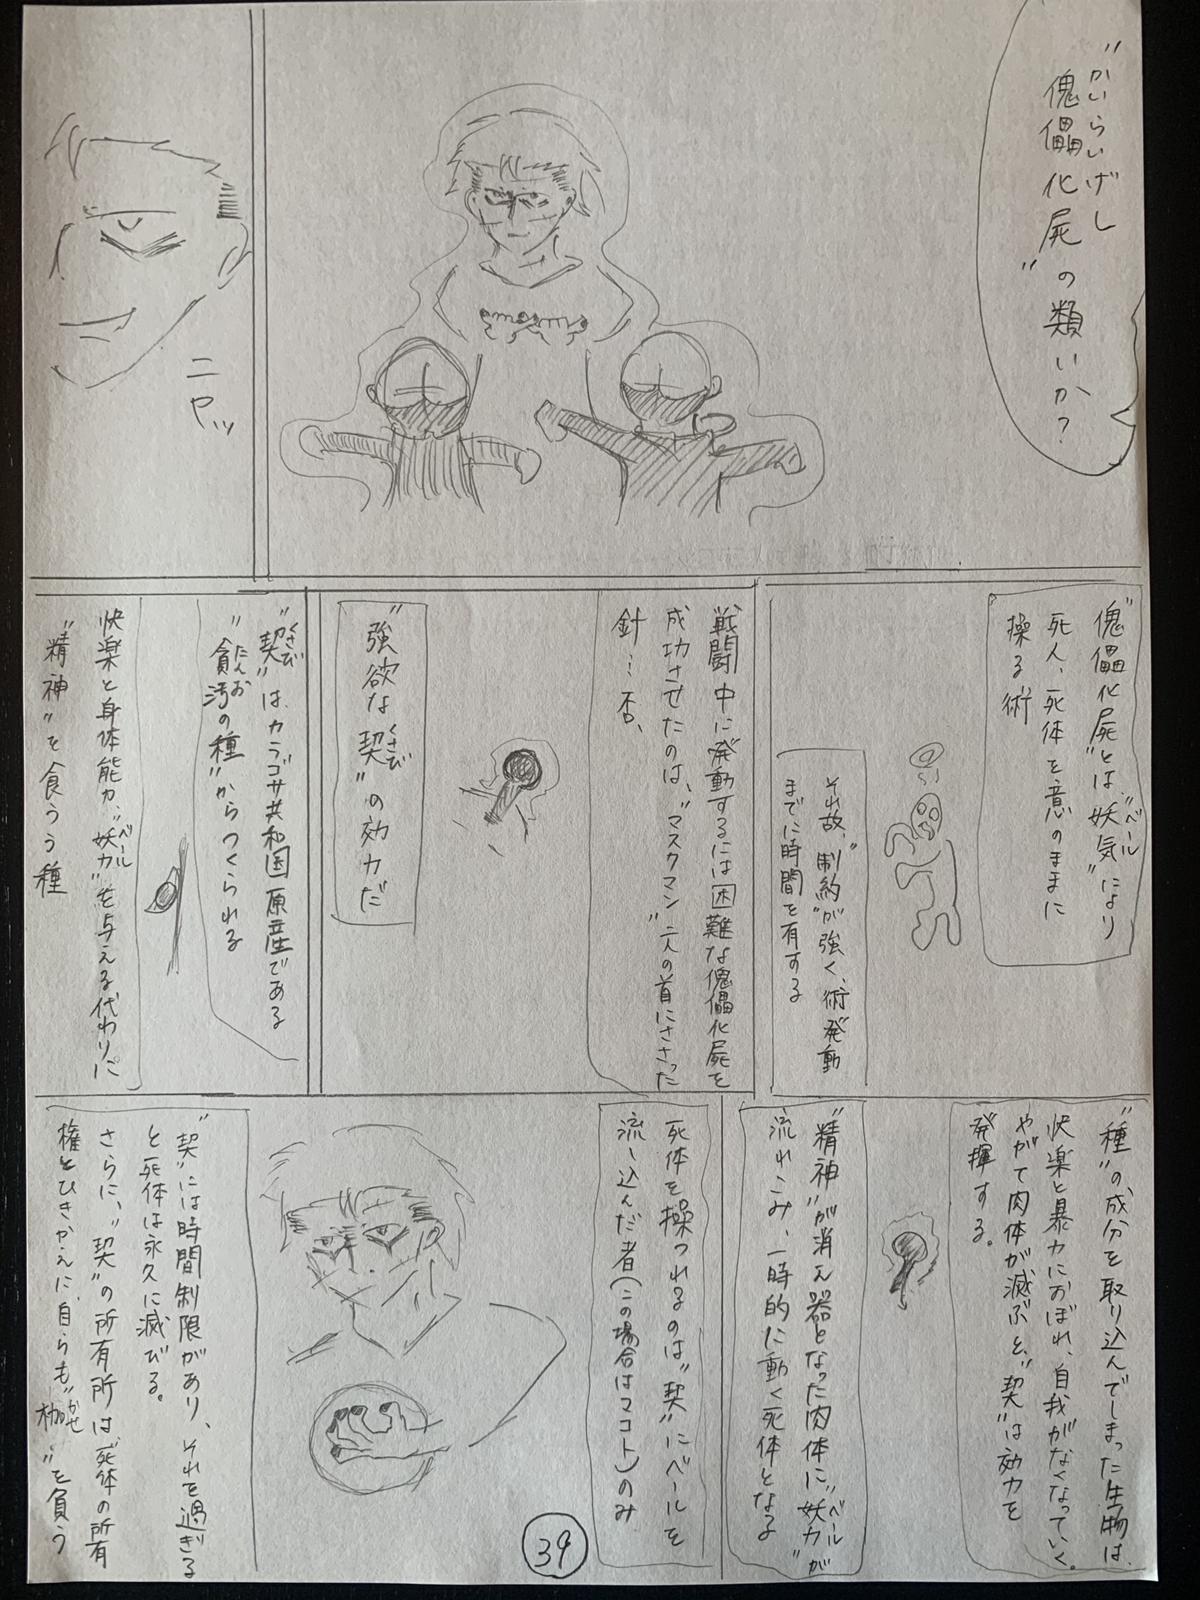 かいらいげし
"傀儡化屍"の類いか?
ニヤッ
"傀儡化屍"とは、"妖気"により
ベール
死人、死体を意のままに
操る術
それ故、"制約"が強く、術発動
までに時間を有する
戦闘中に発動するには困難な傀儡化屍を
成功させたのは、"マスクマン"二人の首にささった
針…否、
"強欲な契"の効力だ
くさび
"契"は、カラゴサ共和国原産である
くさび
"貪汚の種"からつくられる
たんお
快楽と身体能力、"妖力"を与える代わりに
ベール
"精神"を食うう種
"種"の成分を取り込んでしまった生物は、
快楽と暴力におぼれ、自我がなくなっていく。
やがて肉体が滅ぶと、"契"は効力を
発揮する。
"精神"が消え器となった肉体に"妖力"が
ベール
流れこみ、一時的に動く死体となる
死体を操つれるのは"契"にベールを
流し込んだ者(この場合はマコト)のみ
"契"には時間制限があり、それを過ぎる
と死体は永久に滅びる。
さらに、"契"の所有所は、死体の所有
権とひきかえに、自らも"枷"を負う
かせ
39